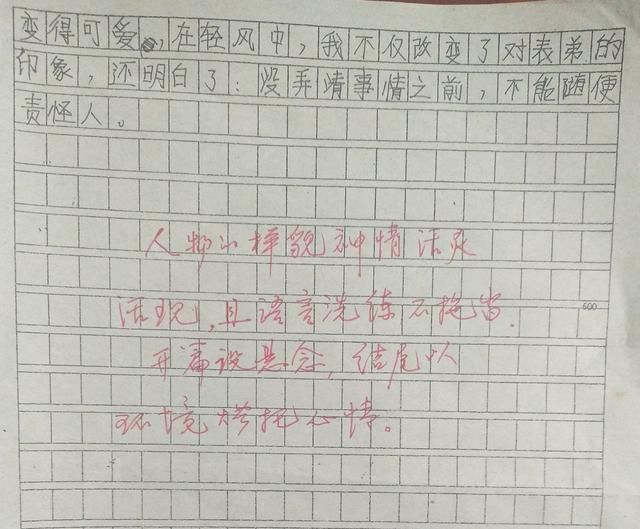 变得可爱，在轻风中，我不仅改变了对表弟的
印象，还明白了：没弄靖事情之前，不能随便
责怪人。
人物的样貌神情活灵
活现，且语言洗练不拖沓.
600
开篇设悬念，结尾以
环境烘托心情。